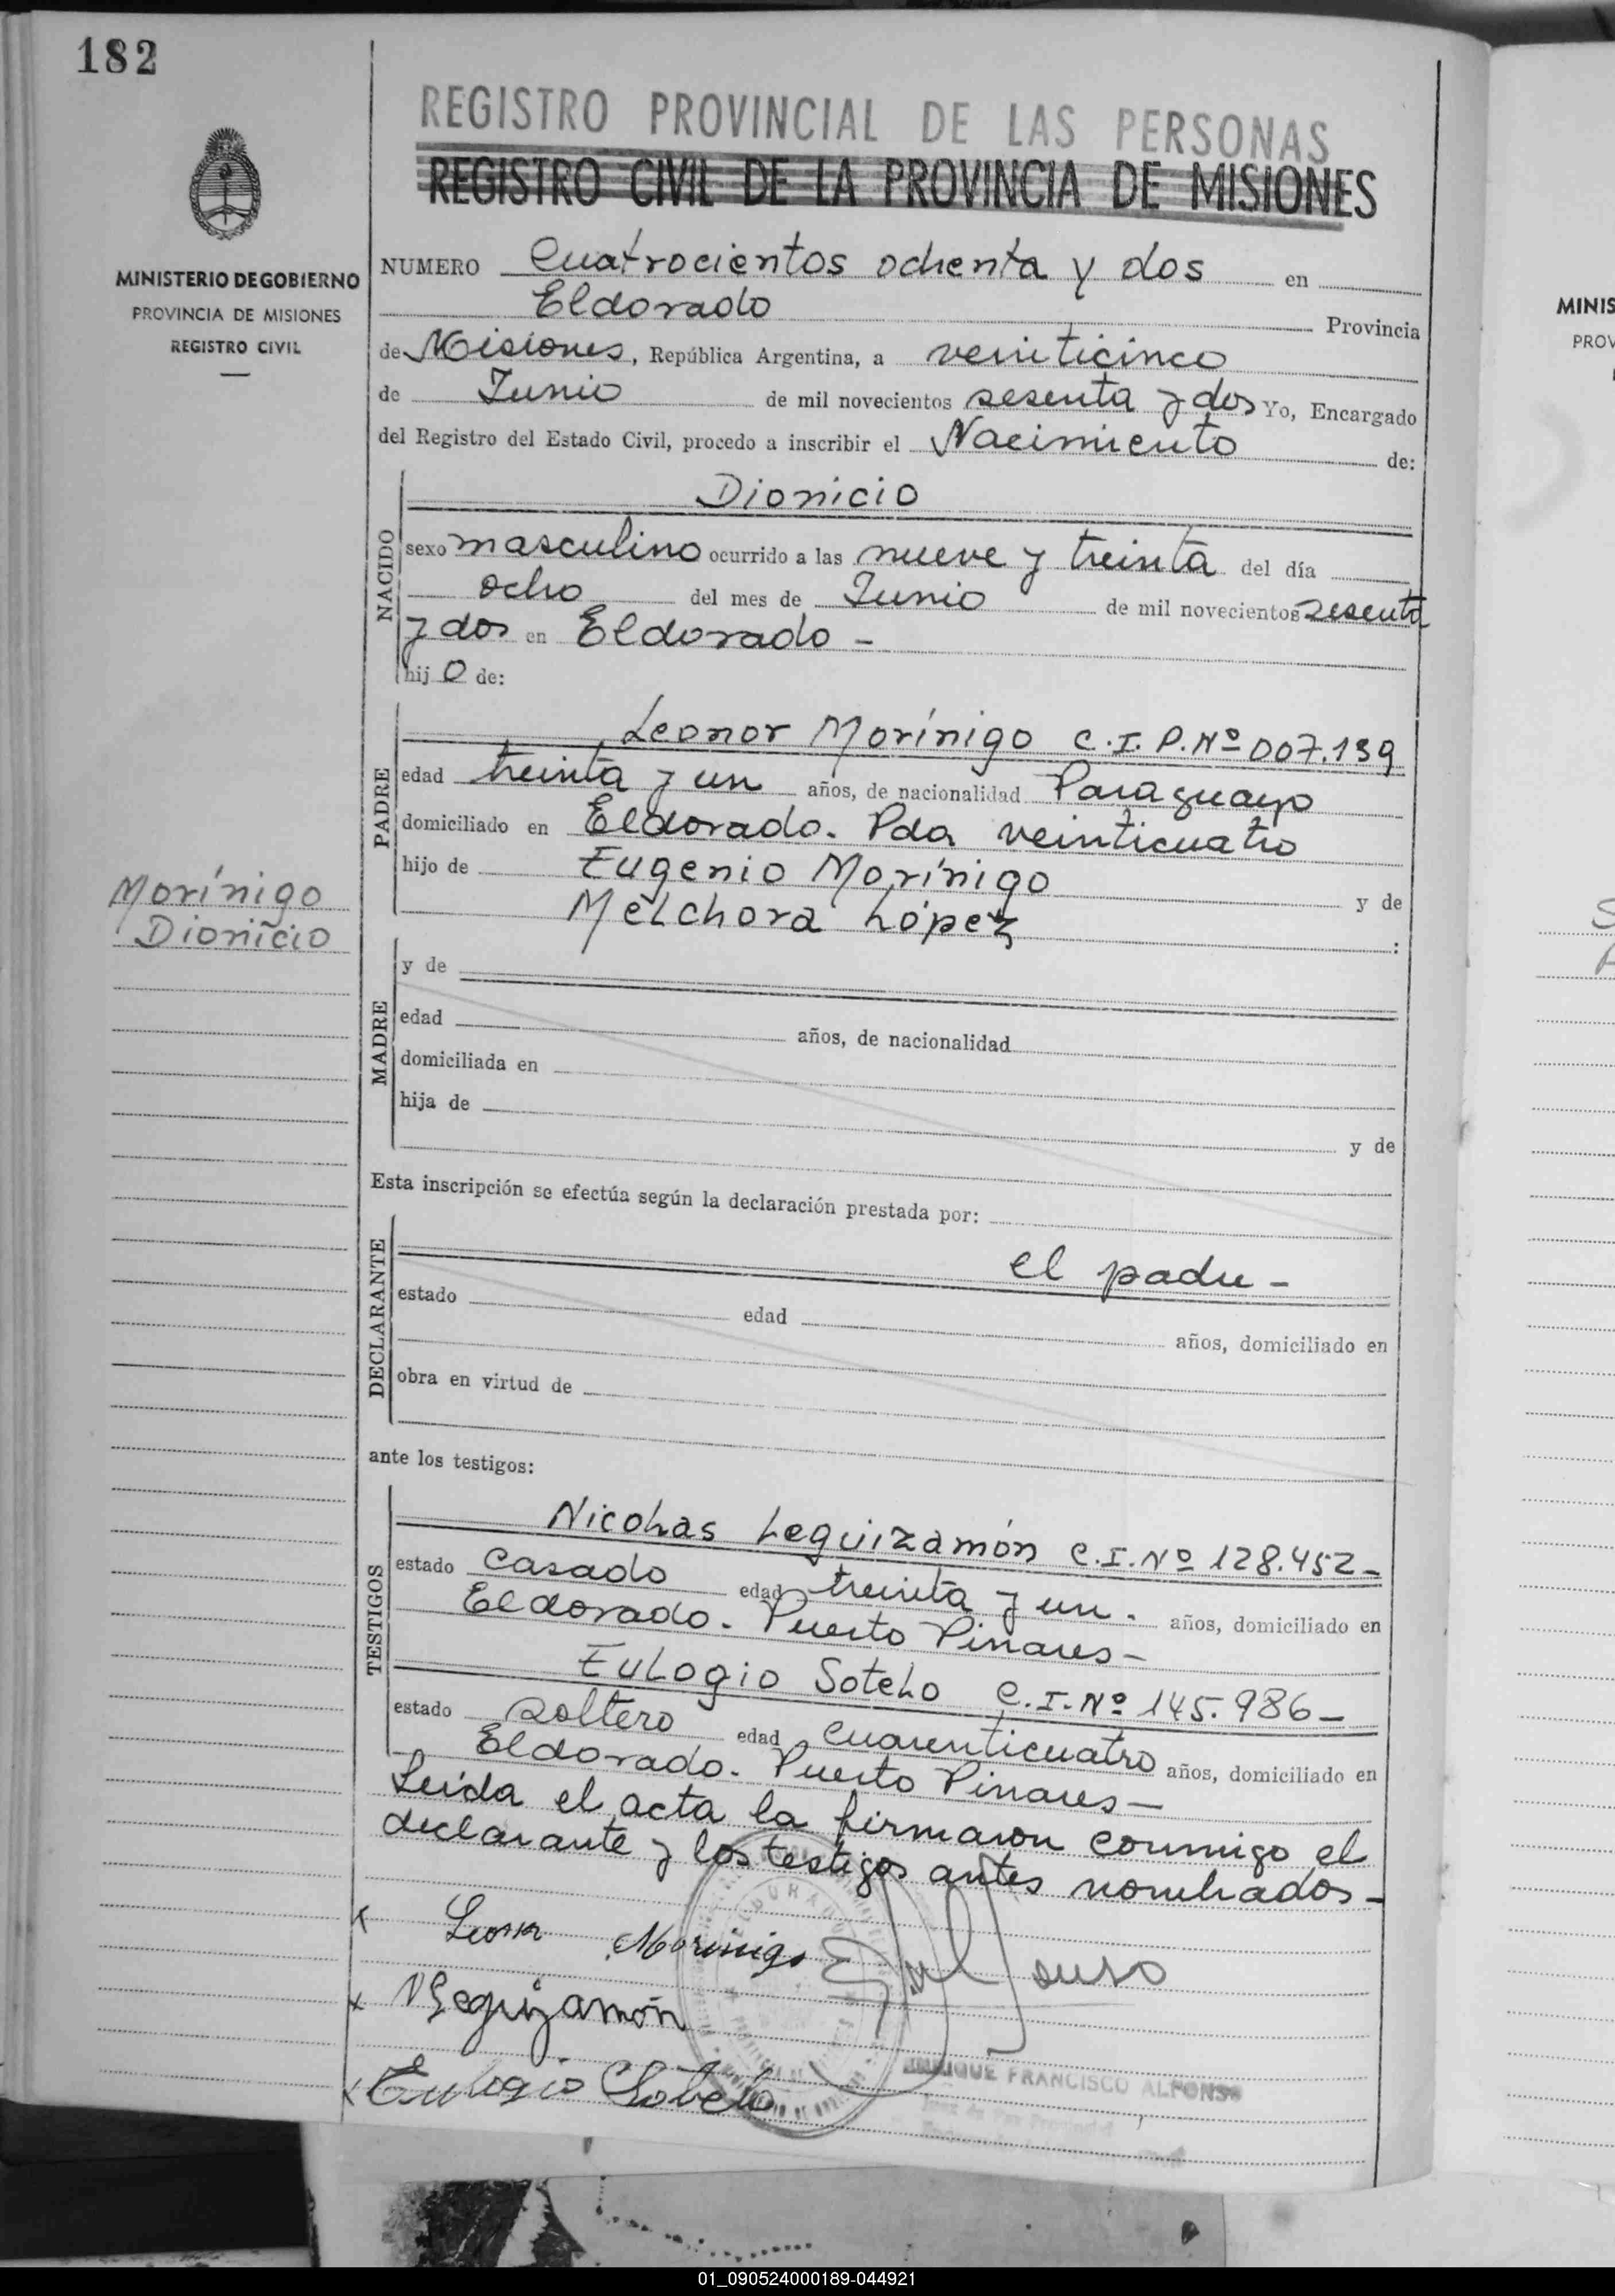 182
REGISTRO PROVINCIAL DE LAS PERSONAS
REGISTRO CIVIL DE LA PROVINCIA DE MISIONES
MINISTERIO DE GOBIERNO
PROVINCIA DE MISIONES
REGISTRO CIVIL
NUMERO Cuatrocientos ochenta y dos en
Eldorado Provincia
de Misiones, República Argentina, a veinticinco
de Junio de mil novecientos sesenta y dos Yo, Encargado
del Registro del Estado Civil, procedo a inscribir el Nacimiento de:
NACIDO
Dionicio
sexo masculino ocurrido a las nueve y treinta del día
ocho del mes de Junio de mil novecientos sesenta
y dos en Eldorado -
hijo de:
PADRE
Leonor Morínigo C.I.P.Nº 007.139
edad treinta y un años, de nacionalidad Paraguayo
domiciliado en Eldorado. Pda veinticuatro
hijo de Eugenio Morínigo y de
Melchora López :
Morínigo
Dionicio
MADRE
y de
edad años, de nacionalidad
domiciliada en
hija de
y de
Esta inscripción se efectúa según la declaración prestada por:
DECLARANTE
el padre -
estado edad años, domiciliado en
obra en virtud de
ante los testigos:
TESTIGOS
Nicolas Leguizamón C.I.Nº 128.452-
estado casado edad treinta y un. años, domiciliado en
Eldorado. Puerto Pinares-
Eulogio Sotelo C.I.Nº 145.986-
estado soltero edad cuarenticuatro años, domiciliado en
Eldorado. Puerto Pinares-
Leida el acta la firmaron conmigo el
declarante y los testigos antes nombrados-
x Leonor Morinigo
x NLeguizamón
x Eulogio Sotelo
ELDORADO
ENRIQUE FRANCISCO ALFONSO
Juez de Paz Provincial
MINIS
PROV
01_090524000189-044921